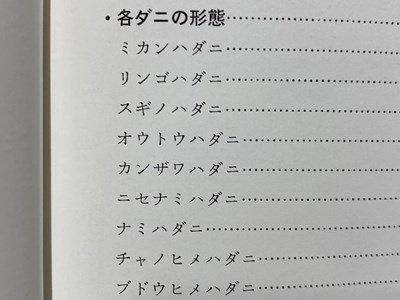 ・各ダニの形態……………………
ミカンハダニ……………………
リンゴハダニ……………………
スギノハダニ……………………
オウトウハダニ…………………
カンザワハダニ…………………
ニセナミハダニ…………………
ナミハダニ………………………
チャノヒメハダニ………………
ブドウヒメハダニ………………